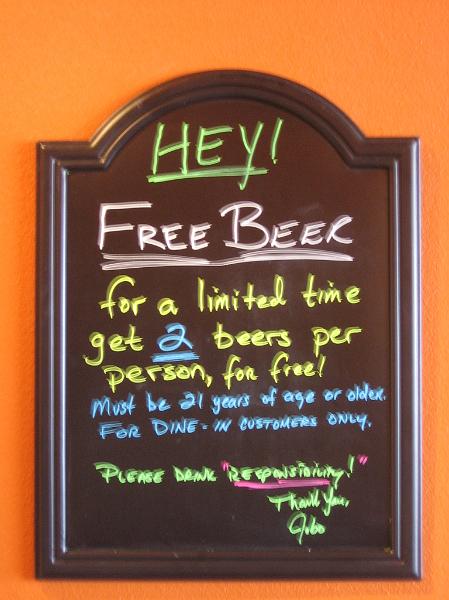 HEY!
FREE BEER
for a limited time
get 2 beers per
person, for free!
Must be 21 years of age or older.
FOR DINE-IN CUSTOMERS ONLY.
PLEASE DRINK "RESPONSIBILITY!"
Thank You,
Gibo